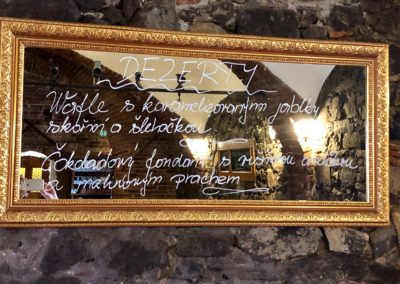 DEZERTY
Wafle s karamelizovaným jablky
skořicí a šlehačkou
Čokoládový fondant s
a malinovým prachem